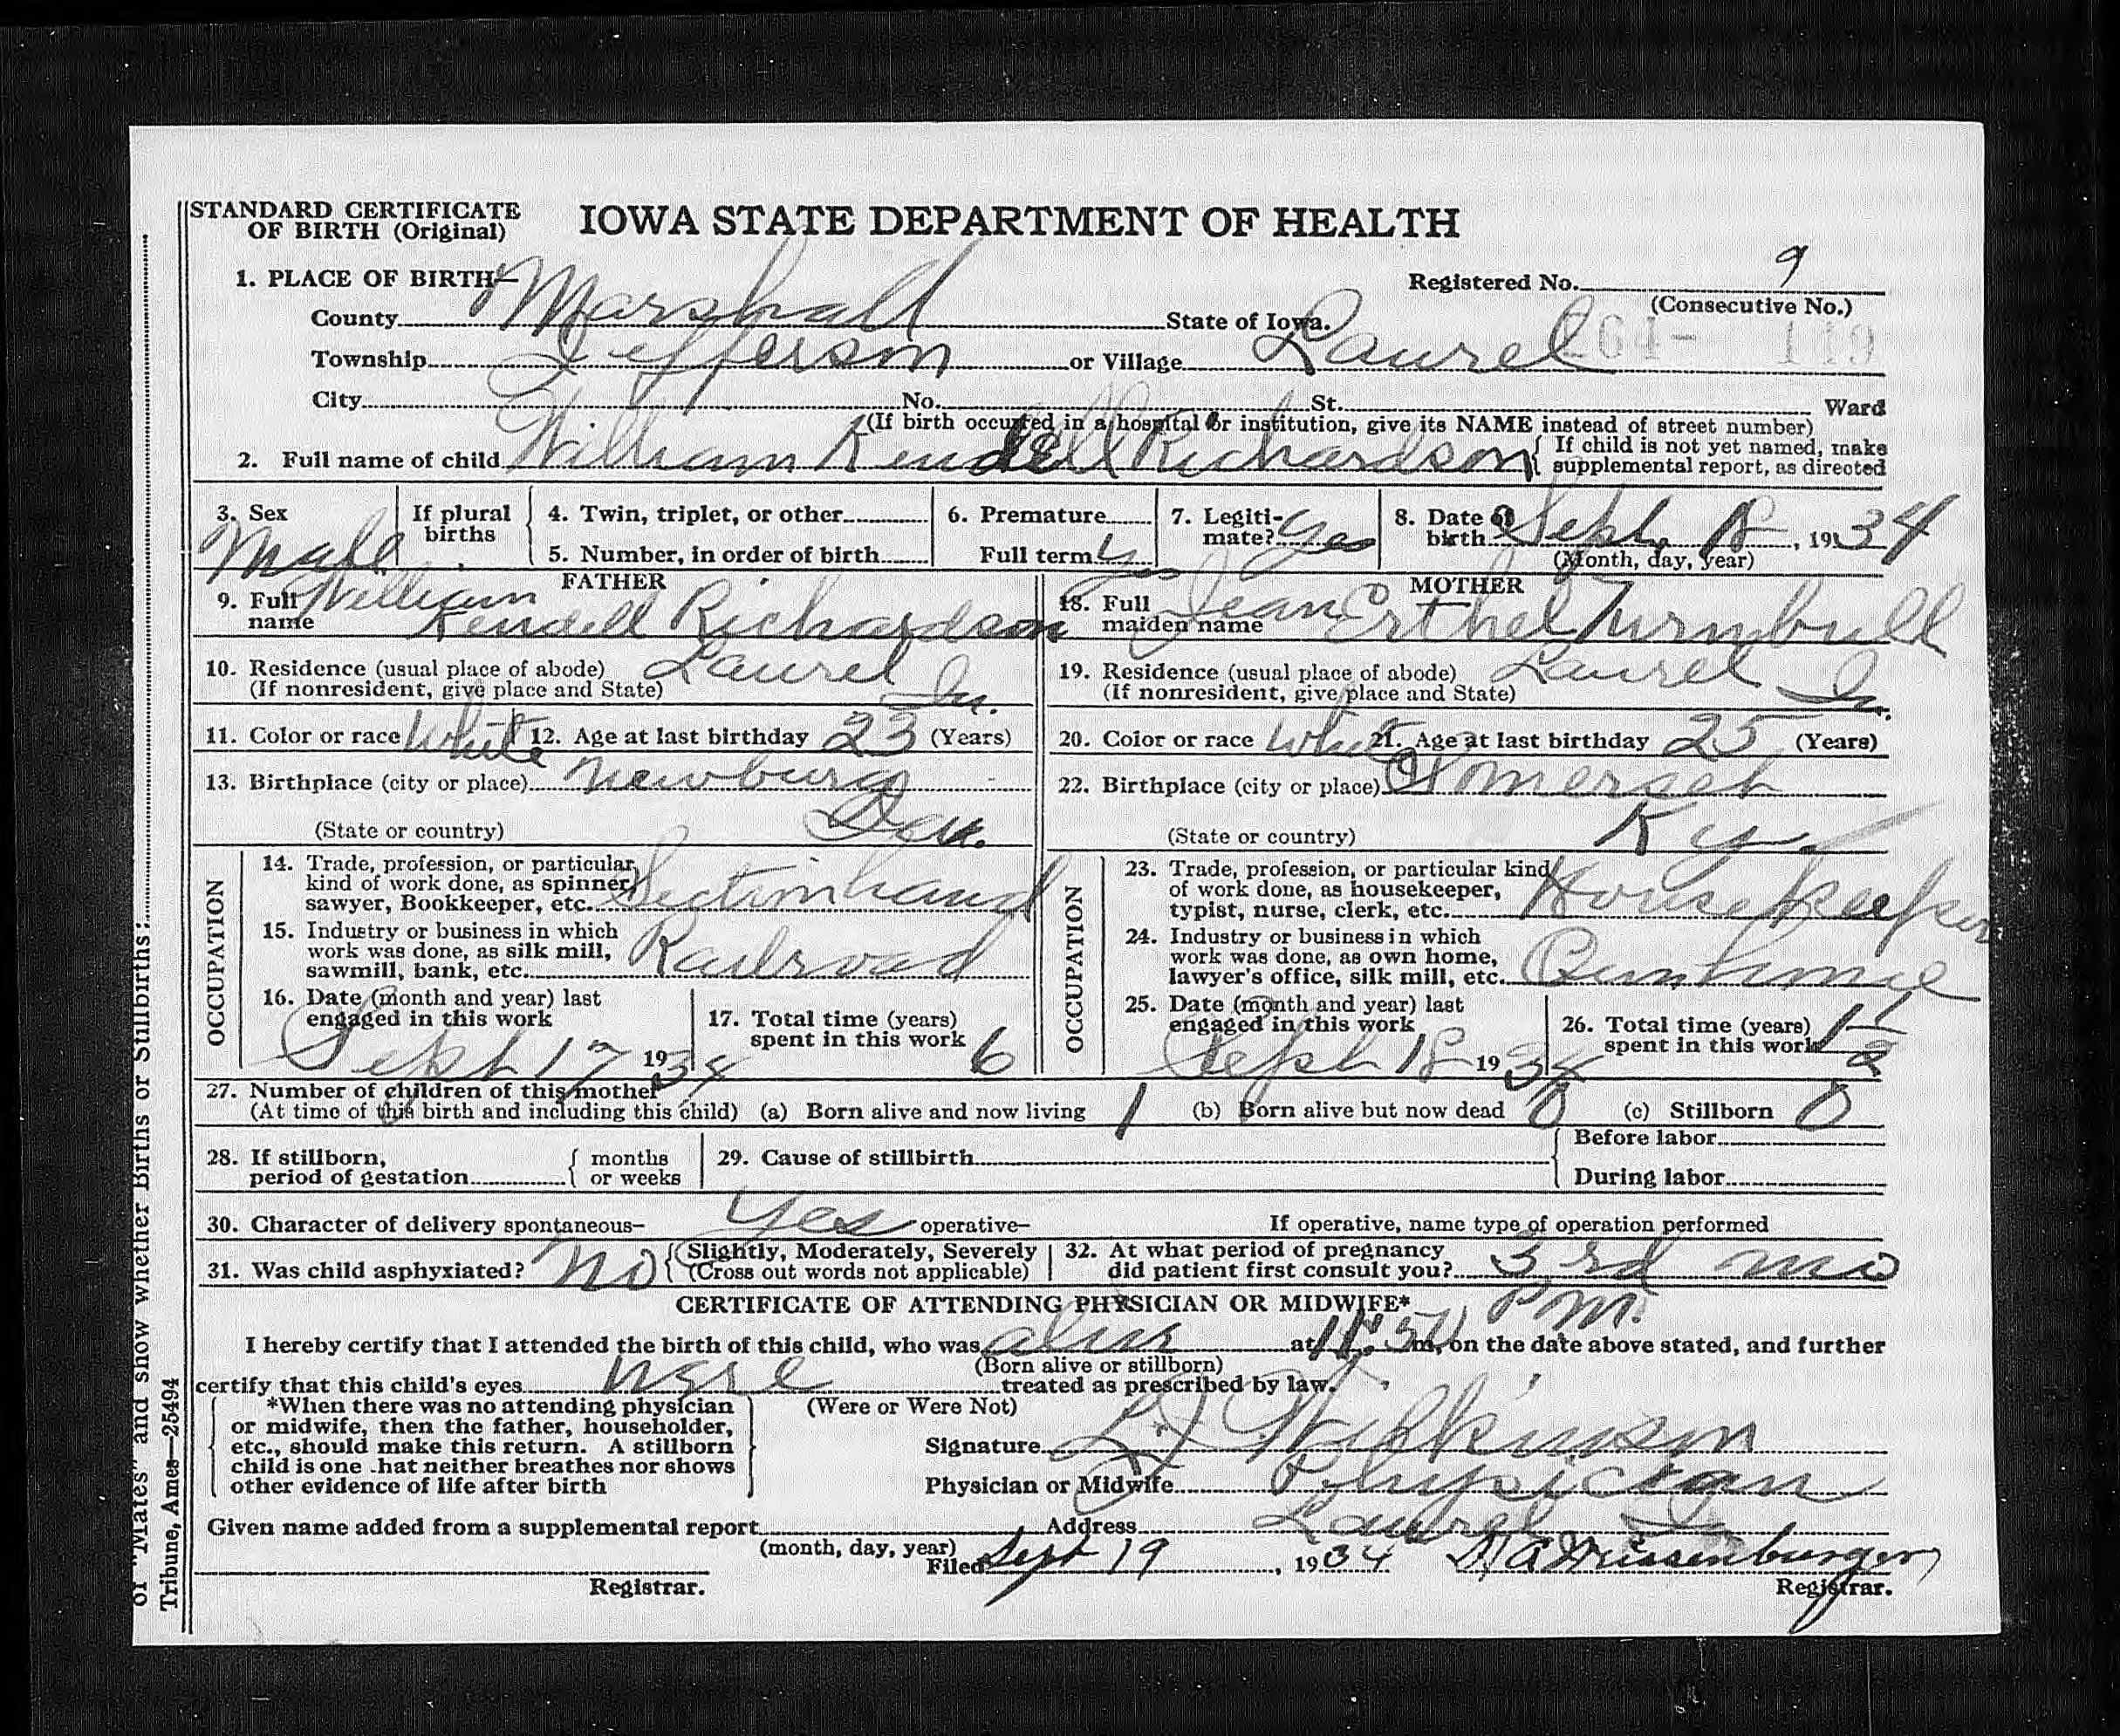 STANDARD CERTIFICATE
OF BIRTH (Original)
IOWA STATE DEPARTMENT OF HEALTH
1. PLACE OF BIRTH—
Registered No. 9
(Consecutive No.)
County Marshall State of Iowa.
64- 119
Township Jefferson or Village Laurel
City No. St. Ward
(If birth occurred in a hospital or institution, give its NAME instead of street number)
2. Full name of child William Kendell Richardson { If child is not yet named, make
supplemental report, as directed
3. Sex Male
If plural
births
4. Twin, triplet, or other
5. Number, in order of birth
6. Premature
Full term yes
7. Legiti-
mate? Yes
8. Date of
birth Sept. 18, 1934
(Month, day, year)
FATHER
9. Full
name William
Kendell Richardson
10. Residence (usual place of abode) Laurel
(If nonresident, give place and State) Ia.
11. Color or race White 12. Age at last birthday 23 (Years)
13. Birthplace (city or place) Newburg
(State or country)
14. Trade, profession, or particular
kind of work done, as spinner,
sawyer, Bookkeeper, etc. Sectionhand
15. Industry or business in which
work was done, as silk mill,
sawmill, bank, etc. Railroad
16. Date (month and year) last
engaged in this work
Sept 17 1934
17. Total time (years)
spent in this work 6
OCCUPATION
MOTHER
18. Full
maiden name Jean Erthel Turnbull
19. Residence (usual place of abode) Laurel
(If nonresident, give place and State) Ia.
20. Color or race White 21. Age at last birthday 25 (Years)
22. Birthplace (city or place) Somerset
(State or country) Ky
OCCUPATION
23. Trade, profession, or particular kind
of work done, as housekeeper,
typist, nurse, clerk, etc. Housekeeper
24. Industry or business in which
work was done, as own home,
lawyer's office, silk mill, etc. Own home
25. Date (month and year) last
engaged in this work
Sept 18 1934
26. Total time (years)
spent in this work 1 1/2
27. Number of children of this mother
(At time of this birth and including this child) (a) Born alive and now living 1 (b) Born alive but now dead 0 (c) Stillborn 0
28. If stillborn,
period of gestation { months
or weeks
29. Cause of stillbirth
Before labor
During labor
30. Character of delivery spontaneous— Yes operative— If operative, name type of operation performed
31. Was child asphyxiated? No { (Slightly, Moderately, Severely
(Cross out words not applicable)
32. At what period of pregnancy
did patient first consult you? 3rd mo
CERTIFICATE OF ATTENDING PHYSICIAN OR MIDWIFE*
P M.
I hereby certify that I attended the birth of this child, who was alive at 11:50 m. on the date above stated, and further
(Born alive or stillborn)
certify that this child's eyes were treated as prescribed by law.
(Were or Were Not)
*When there was no attending physician
or midwife, then the father, householder,
etc., should make this return. A stillborn
child is one hat neither breathes nor shows
other evidence of life after birth
Signature Wilkinson
Physician or Midwife Physician
Given name added from a supplemental report Address Laurel Ia
(month, day, year)
Filed Sept 19, 1934
Registrar.
Registrar.
or "Mates" and show whether Births or Stillbirths:
Tribune, Ames—25494